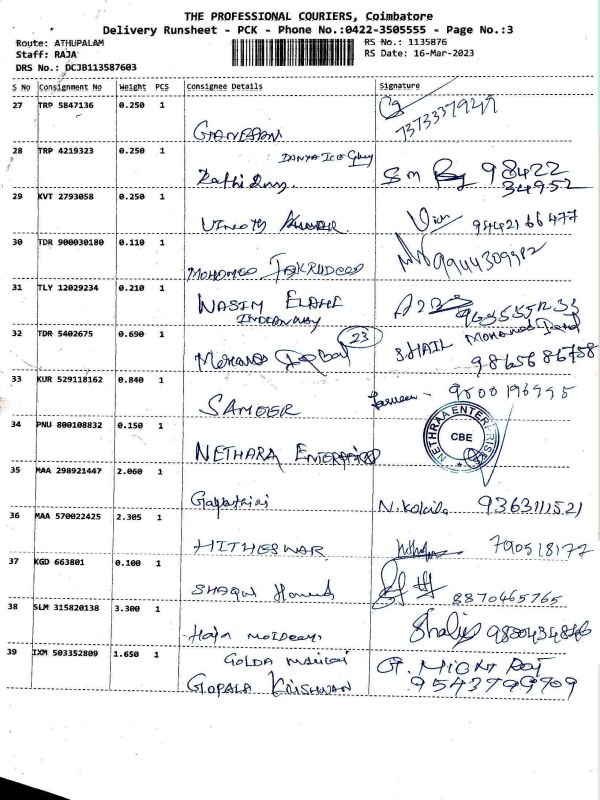 THE PROFESSIONAL COURIERS, Coimbatore
Delivery Runsheet - PCK - Phone No.:0422-3505555 - Page No.:3
Route: ATHUPALAM
RS No.: 1135876
Staff: RAJA
RS Date: 16-Mar-2023
DRS No.: DCJB113587603
S No Consignment No Weight PCS Consignee Details Signature
27 TRP 5847136 0.250 1
GANESAN
7373337949
28 TRP 4219323 0.250 1
98422
34952
29 KVT 2793058 0.250 1
VINOTH KUMAR
94421 66477
30 TDR 900030180 0.110 1
MOHAMED FAKRUDEEN
9944309982
31 TLY 12029234 0.210 1
WASIM ELAHI
INDIANWAY
32 TDR 5402675 0.690 1
23
SHAIL
9865686758
33 KUR 529118162 0.840 1
SAMEER
34 PNU 800108832 0.150 1
NETHARA ENTERPRISE
NETHRAA ENTERPRISES
CBE
35 MAA 298921447 2.060 1
Gayathiri
N. Kokila 9363111521
36 MAA 570022425 2.305 1
HITHESWAR
790518177
37 KGD 663801 0.100 1
8870465765
38 SLM 315820138 3.300 1
39 IXM 503352809 1.650 1
GOPALA KRISHNAN
9543799709